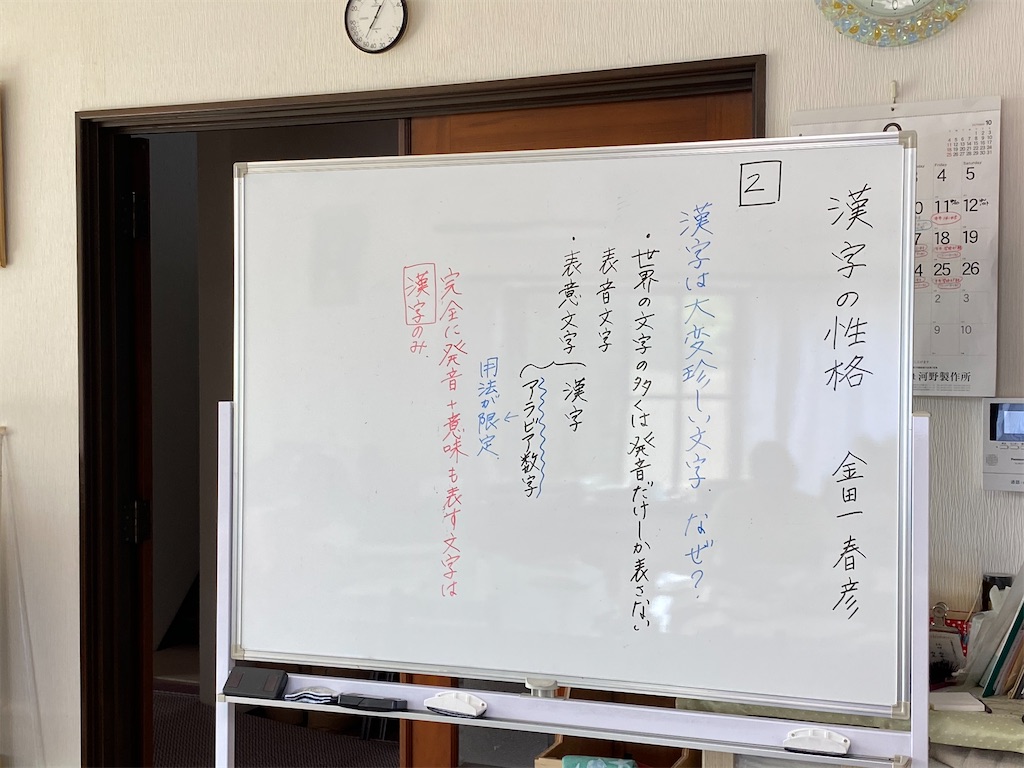 漢字の性格 金田一春彦
2
漢字は大変珍しい文字.なぜ?
・世界の文字の多くは発音だけしか表さない
表音文字
・表意文字
漢字
アラビア数字
←
用法が限定.
完全に発音+意味も表す文字は
漢字のみ.
10
Friday Saturday
4 5
11 12
18 19
25 26
2 3
9 10
河野製作所